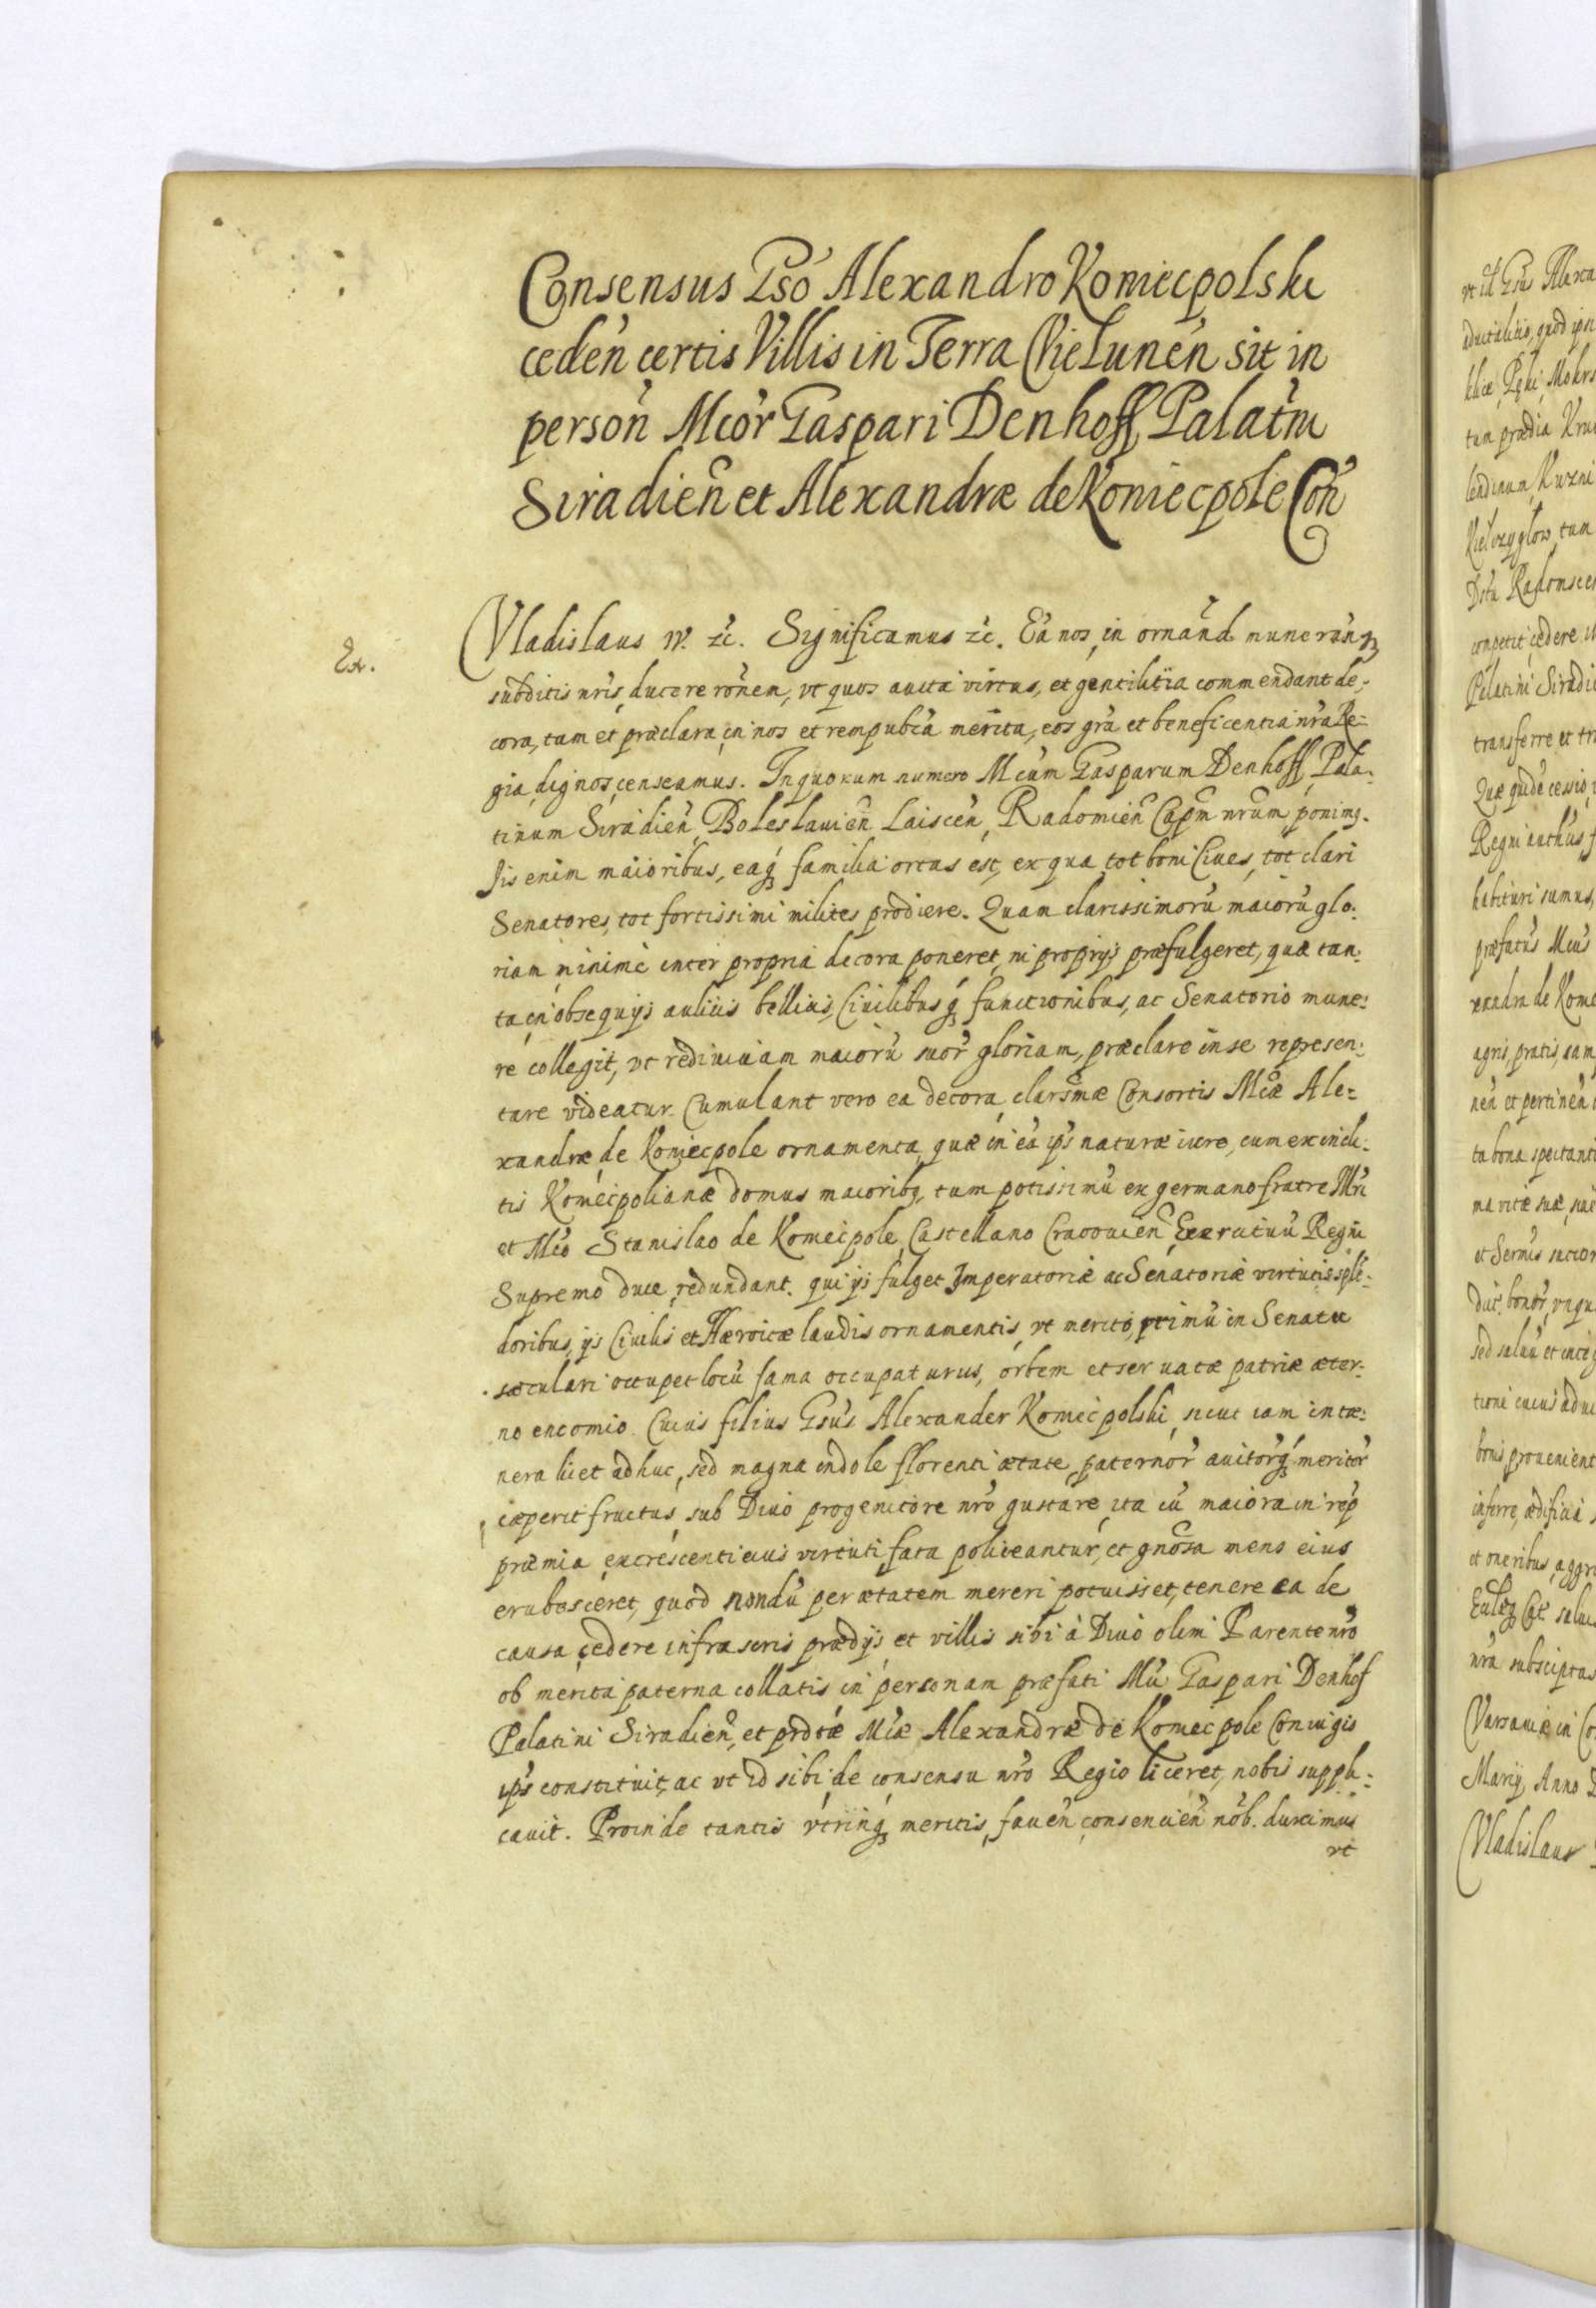 Consensus Gso Alexandro Koniecpolski
ceden certis Villis in Terra Vielunen sit in
person Mcor Gaspari Denhoff Palatni
Siradien et Alexandræ de Koniecpole Con
Ex.
Vladislaus IV. etc. Significamus etc. Ea nos, in ornand munerandq
subditis nris, ducere ronem, vt quos auita virtus, et gentilitia commendant de-
cora, tum et præclara in nos et rempubca merita, eos gra et beneficentia nra Re-
gia dignos censeamus. In quorum numero Mcum Gasparum Denhoff Pala-
tinum Siradien, Boleslauien Laiscen, Radomien Capm nrum ponimq.
Iis enim maioribus, eaq familia ortus est, ex qua tot boni Ciues, tot clari
Senatores, tot fortissimi milites prodiere. Quam clarissimoru maioru glo-
riam minime inter propria decora poneret, ni proprijs præfulgeret, quæ tan-
ta in obsequijs aulicis bellicis, Ciuilibusq functionibus, ac Senatorio mune-
re collegit, vt rediuiuam maioru suor gloriam, præclare in se represen-
tare videatur. Cumulant vero ea decora clarsmæ Consortis Mcæ Ale-
xandræ de Koniecpole ornamenta, quæ in ea ips naturæ iure, cum ex incli-
tis Koniecpolianæ domus maioribq, tum potissimu ex germano fratre Mri
et Mco Stanislao de Koniecpole Castellano Cracouien Exercituu Regni
Supremo duce, redundant. qui ijs fulget Imperatoriæ ac Senatoriæ virtutis sple-
doribus, ijs Ciuilis et Hæroicæ laudis ornamentis, vt merito primu in Senatu
sæculari occupet locu fama occupaturus, orbem et seruatæ patriæ æter-
no encomio. Cuius filius Gsus Alexander Koniecpolski, sicut iam in tæ-
nera licet adhuc, sed magna indole florenti ætate, paternor auitorq meritor
cæperit fructus, sub Diuo progenitore nro gustare, ita cu maiora in rep
præmia excrescenti eius virtuti fata policeantur, et gnosa mens eius
erubesceret, quod nondu per ætatem mereri potuisset, tenere ea de
causa cedere infrascris prædijs et villis sibi à Diuo olim Parente nro
ob merita paterna collatis in personam præfati Mci Gaspari Denhof
Palatini Siradien, et prdtæ Mcæ Alexandræ de Koniecpole Coniugis
ips constituit, ac vt id sibi de consensu nro Regio liceret, nobis suppli-
cauit. Proinde tantis vtrinq meritis, fauen consencien nob. duximus
vt